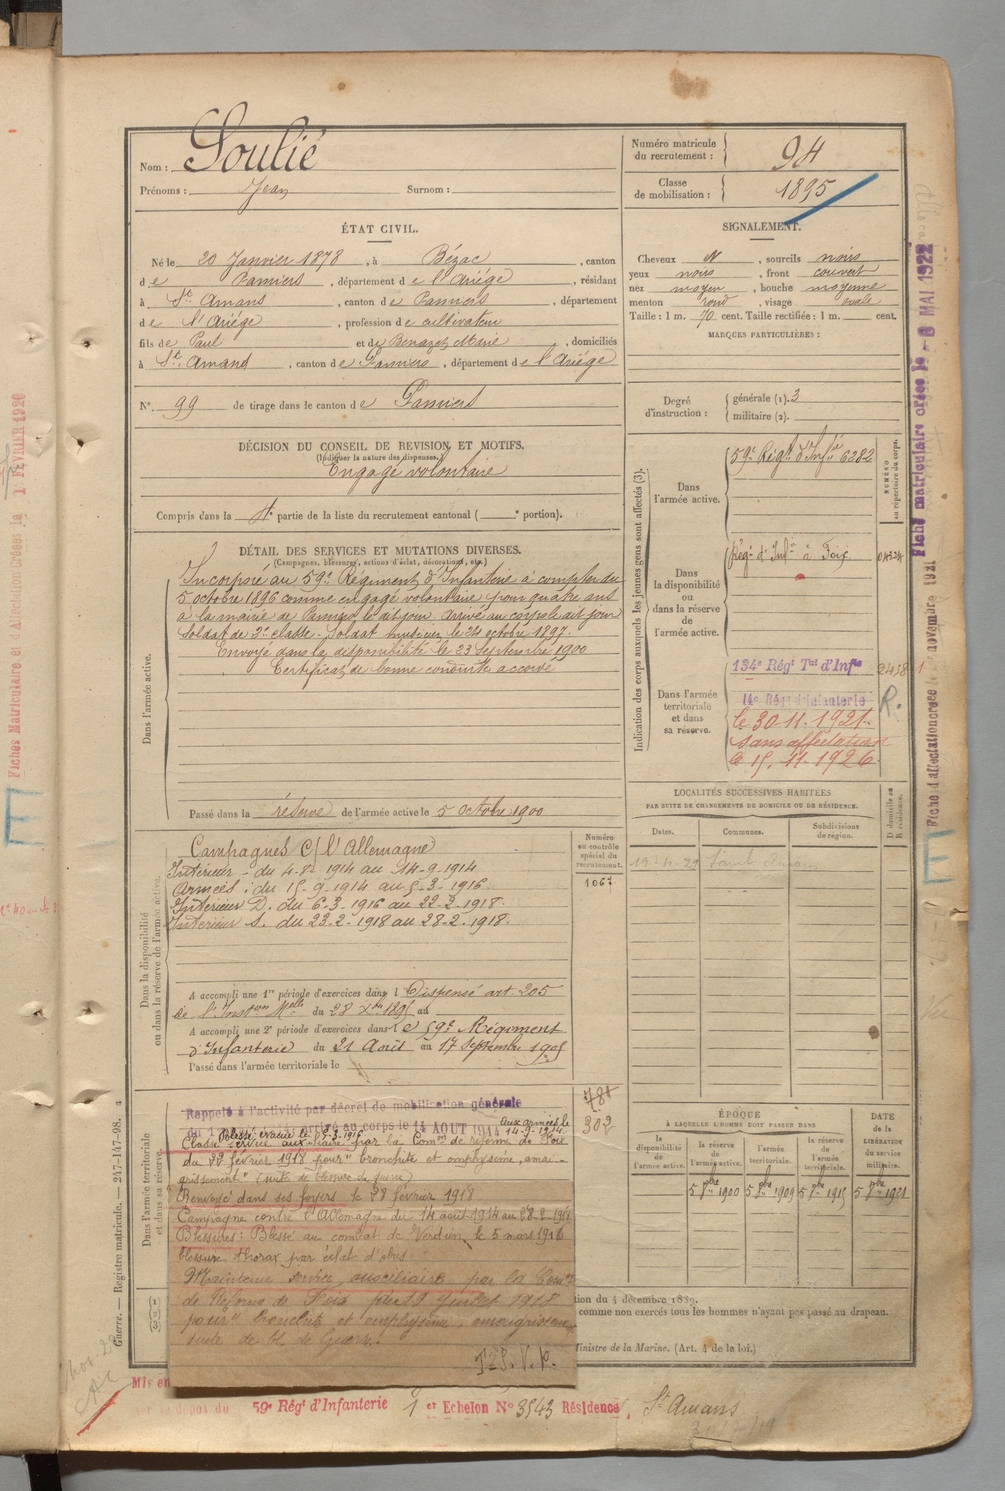 Nom : Soulié
Prénoms : Jean Surnom :
Numéro matricule du recrutement : 94
Classe de mobilisation : 1895
ÉTAT CIVIL.
Né le 20 Janvier 1878, à Bézac, canton
de Pamiers, département de l'Ariége, résidant
à St. Amans, canton de Pamiers, département
de l'Ariége, profession de cultivateur
fils de Paul et de Benazet Marie, domiciliés
à St. Amand, canton de Pamiers, département de l'Ariége
N° 99 de tirage dans le canton de Pamiers
SIGNALEMENT.
Cheveux N, sourcils noirs
yeux noirs, front couvert
nez moyen, bouche moyenne
menton rond, visage ovale
Taille : 1 m. 70 cent. Taille rectifiée : 1 m. cent.
MARQUES PARTICULIÈRES :
Degré d'instruction : générale (1). 3
militaire (2).
DÉCISION DU CONSEIL DE REVISION ET MOTIFS.
(Indiquer la nature des dispenses.)
Engagé volontaire
Compris dans la 4e partie de la liste du recrutement cantonal ( e portion).
DÉTAIL DES SERVICES ET MUTATIONS DIVERSES.
(Campagnes, blessures, actions d'éclat, décorations, etc.)
Dans l'armée active.
Incorporé au 59e Régiment d'Infanterie à compter du
5 octobre 1896 comme engagé volontaire pour quatre ans
à la mairie de Pamiers, le dit jour. Arrivé au corps le dit jour
Soldat de 2e classe. Soldat musicien le 24 octobre 1897.
Envoyé dans la disponibilité le 23 Septembre 1900
Certificat de bonne conduite accordé
Passé dans la réserve de l'armée active le 5 octobre 1900
Indication des corps auxquels les jeunes gens sont affectés (3).
Dans l'armée active.
59e Régt. d'Infie 6282
NUMÉRO au répertoire du corps.
Dans la disponibilité ou dans la réserve de l'armée active.
Régt d'Infie à Foix 0424
Dans l'armée territoriale et dans sa réserve.
134e Régt Tal d'Infie 2458
14e Régt d'Infanterie R.
le 30-11-1921.
Sans affectation
le 15-11-1926
LOCALITÉS SUCCESSIVES HABITÉES
PAR SUITE DE CHANGEMENTS DE DOMICILE OU DE RÉSIDENCE.
Dates. Communes. Subdivisions de région. D domicile ou R résidence.
Dans la disponibilité ou dans la réserve de l'armée active.
Campagnes C/ l'Allemagne
Intérieur - du 4-8-1914 au 14-9-1914
Armées : du 15-9-1914 au 5-3-1916
Intérieur D. du 6-3-1916 au 22-2-1918.
Intérieur S. du 23-2-1918 au 28-2-1918.
Numéro au contrôle spécial du recrutement.
1067
A accompli une 1re période d'exercices dans l Dispensé art. 205
de l'Instion Melle du 28 Xbre 1895 au
A accompli une 2e période d'exercices dans le 59e Régiment
d'Infanterie du 21 Août au 17 Septembre 1905
Passé dans l'armée territoriale le
Dans l'armée territoriale et dans sa réserve.
Rappelé à l'activité par décret de mobilisation générale
arrivé au corps le 14 AOUT 1914 aux armées le 14-9-1914.
Blessé évacué le 5-3-1916
Classé service auxiliaire par la Comon de réforme de Foix
du 22 février 1918 pour "bronchite et emphysème, amai-
grissement" (suite de blessure de guerre)
Renvoyé dans ses foyers le 28 février 1918
Campagne contre l'Allemagne du 14 août 1914 au 28-2-1918
Blessures : Blessé au combat de Verdun, le 5 mars 1916
blessure thorax par éclat d'obus
Maintenu service auxiliaire par la Comon
de Réforme de Foix du 13 Juillet 1918
pour bronchite et emphysème, amaigrissement
suite de bl. de Guerre.
781
302
ÉPOQUE
À LAQUELLE L'HOMME DOIT PASSER DANS
la disponibilité de l'armée active. la réserve de l'armée active. l'armée territoriale. la réserve de l'armée territoriale.
DATE DE LA LIBÉRATION DU SERVICE militaire.
5 8bre 1900 5 8bre 1909 5 8bre 1915 5 8bre 1921
tion du 4 décembre 1889.
comme non exercés tous les hommes n'ayant pas passé au drapeau.
Ministre de la Marine. (Art. 4 de la loi.)
Mis en
dépôt du 59e Régt d'Infanterie 1er Echelon N° 3543 Résidence St Amans
Guerre. — Registre matricule. — 247-147-98.
Fiche matriculaire créée le -8 MAI 1922
Fiche d'affectation créée le novembre 1921
Fiches Matriculaire et d'Affectation Créées le 1 FÉVRIER 1926